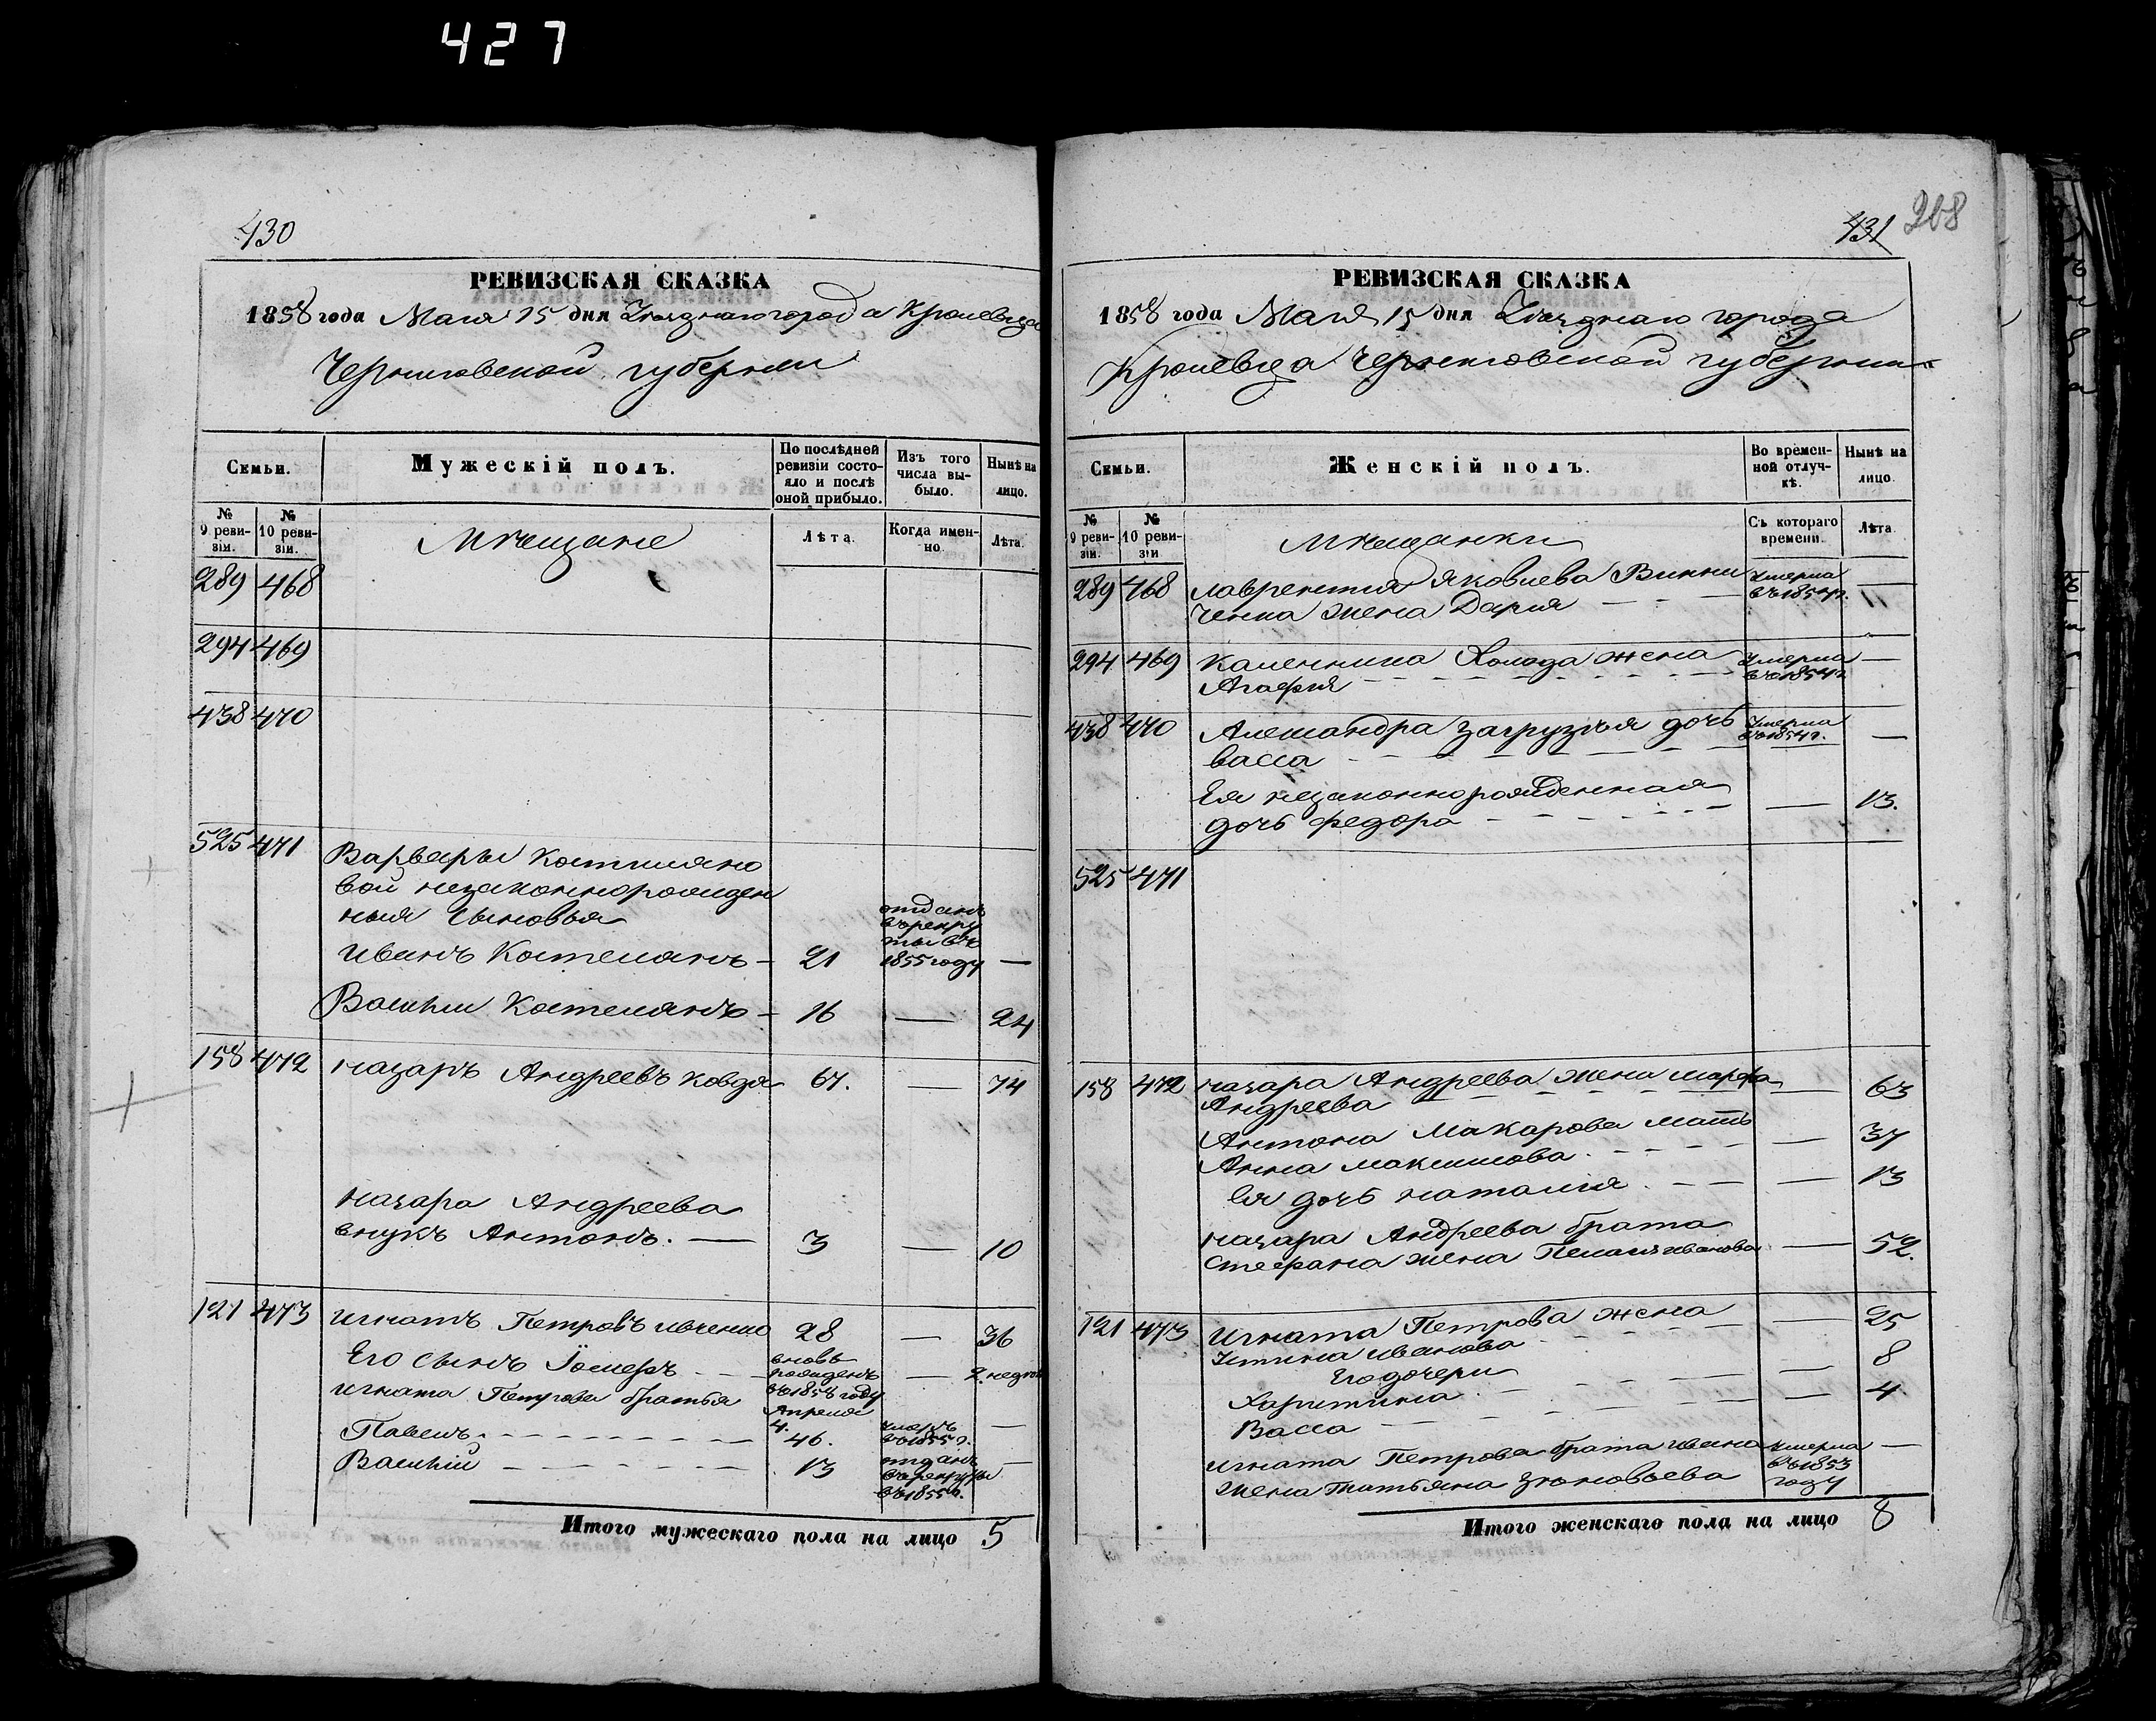 427
430
РЕВИЗСКАЯ СКАЗКА
1858 года Мая 15 дня Уезднаго города Кролевца
Черниговской губернии
Семьи.
Мужескій полъ.
По послѣдней ревизіи состояло и послѣ оной прибыло.
Изъ того числа выбыло.
Нынѣ на лицо.
№ 9 ревизіи.
№ 10 ревизіи.
Мѣщане
Лѣта.
Когда именно.
Лѣта.
289 468
294 469
438 470
525 471 Варвары Костиляно
вой незаконнорожден
ныя сыновья
Иванъ Костелянъ - 21 отданъ въ рекруты въ 1855 году —
Василiи Костелянъ - 16 — 24
158 472 Назаръ Андреевъ Ковдя 67. — 74
Назара Андреева
внукъ Антонъ. — 3 — 10
121 473 Игнатъ Петровъ Ивченко 28 — 36
Его сынъ Іосифъ - вновь рожденъ въ 1858 году Апреля 4. — 2. недел
Игната Петрова братья
Павелъ 46. умеръ въ 1855 г. —
Василій 13 отданъ въ рекруты въ 1855 г. —
Итого мужескаго пола на лицо 5
431 208
РЕВИЗСКАЯ СКАЗКА
1858 года Мая 15 дня Уезднаго города
Кролевца Черниговской губернии
Семьи.
Женскій полъ.
Во временной отлучкѣ.
Нынѣ на лицо.
№ 9 ревизіи.
№ 10 ревизіи
Мѣщанки
Съ котораго времени.
Лѣта.
289 468 Лаврентия Яковлева Винни
ченка жена Дария — умерла въ 1854 г. —
294 469 Каленника Холода жена
Агафия умерла въ 1854 г. —
438 470 Александра Загрузчья дочь
Васса умерла въ 1854 г. —
Ея незаконнорожденная
дочь Федора — 13.
525 471
158 472 Назара Андреева жена Марфа
Андреева — 63
Антона Макарова мать
Анна Максимова — 37
Ея дочь Наталия — 13
Назара Андреева брата
Стефана жена Пелагия Иванова — 52.
121 473 Игната Петрова жена
Устина Иванова — 25
Его дочери
Харитина — 8
Васса — 4
Игната Петрова брата Ивана
жена Татьяна Зиновьева умерла въ 1853 году —
Итого женскаго пола на лицо 8